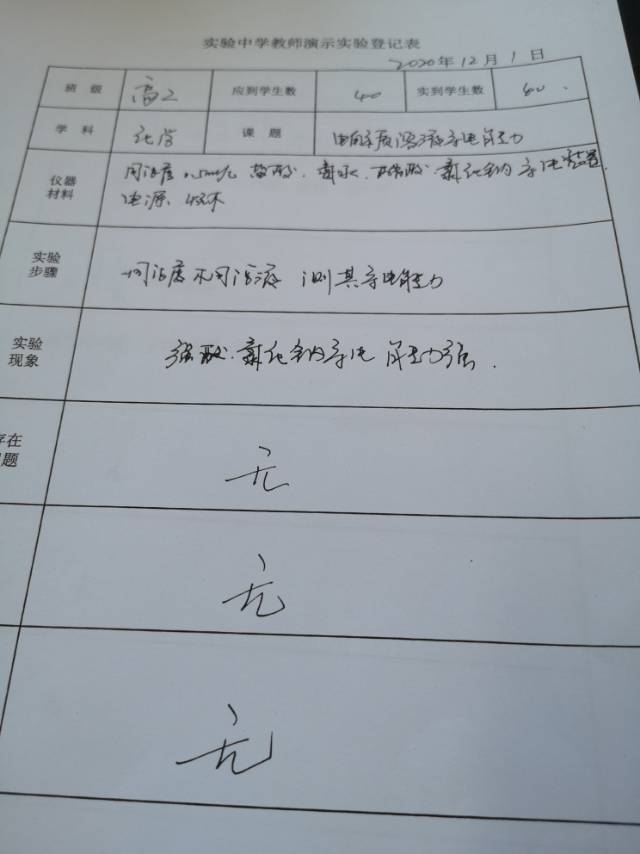 实验中学教师演示实验登记表
2020年12月1日
班 级 高二 应到学生数 40 实到学生数
学 科 化学 课 题 电解质溶液导电能力
仪器 同浓度 盐酸、氨水、 氯化钠 导电装置
材料 电源、
实验
步骤 同浓度不同溶液 测其导电能力
实验
现象 强酸、氯化钠导电能力强.
存在
题 无
无
无